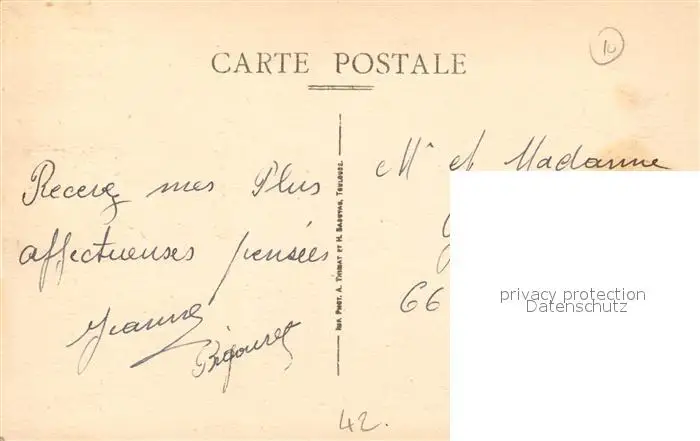 10
CARTE POSTALE
Mr et Madame
Recevez mes Plus
affectueuses pensées
Jeanne
Bigouret
66
privacy protection
Datenschutz
IMP. PHOT. A. THIRIAT ET H. BASUYAU, TOULOUSE.
42.